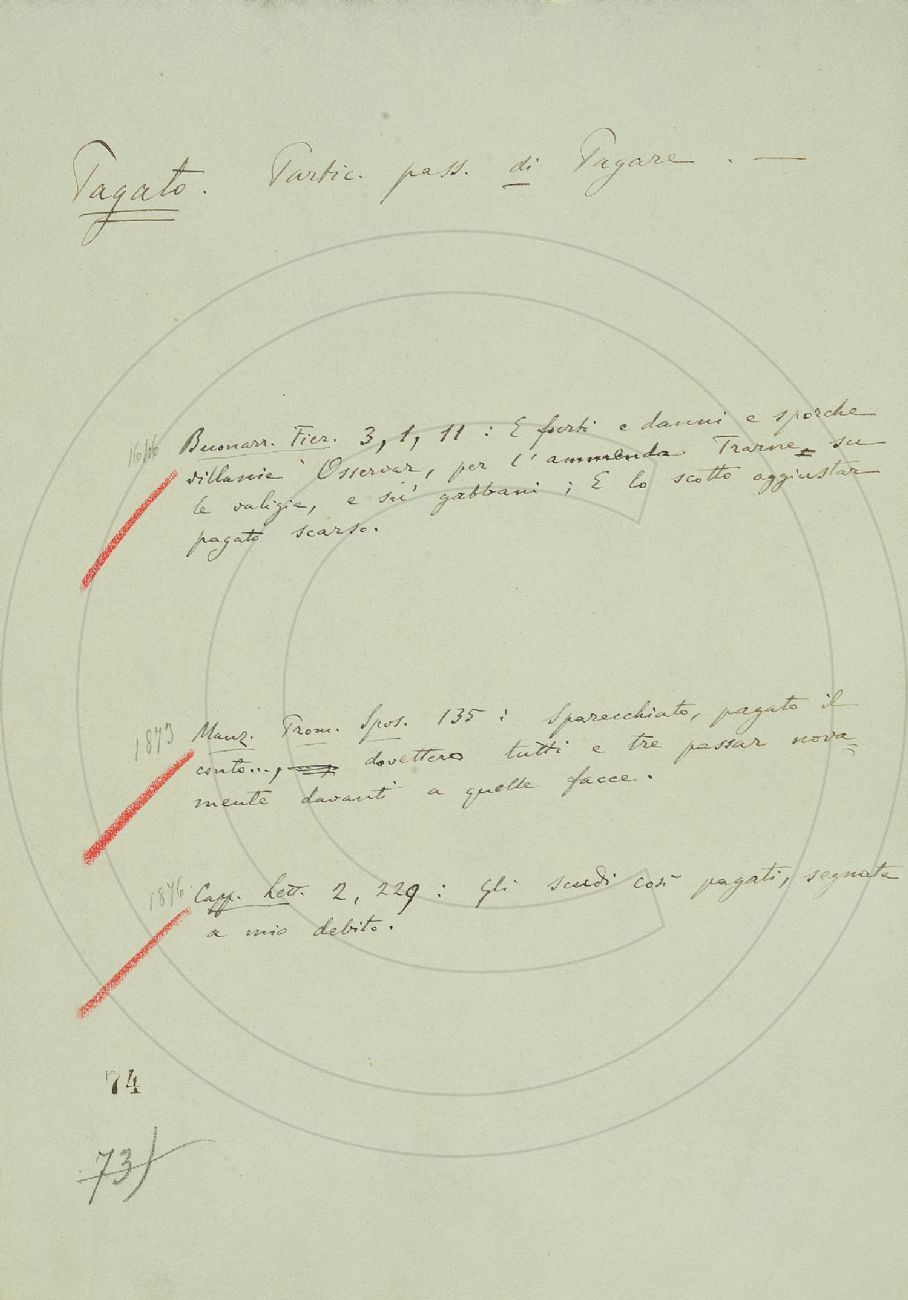 Pagato. Partic. pass. di Pagare. —
Buonarr. Fier. 3, 1, 11 : E furti e danni e sporche
villanie Osservar, per l'ammenda Trarne su
le valigie, e su' gabbani ; E lo scotto aggiustar
pagato scarso.
1873
Manz. Prom. Spos. 135 : Sparecchiato, pagato il
conto..., dovettero tutti e tre passar nova-
mente davanti a quelle facce.
1876
Capp. Lett. 2, 229 : Gli scudi così pagati, segnata
a mio debito.
74
73